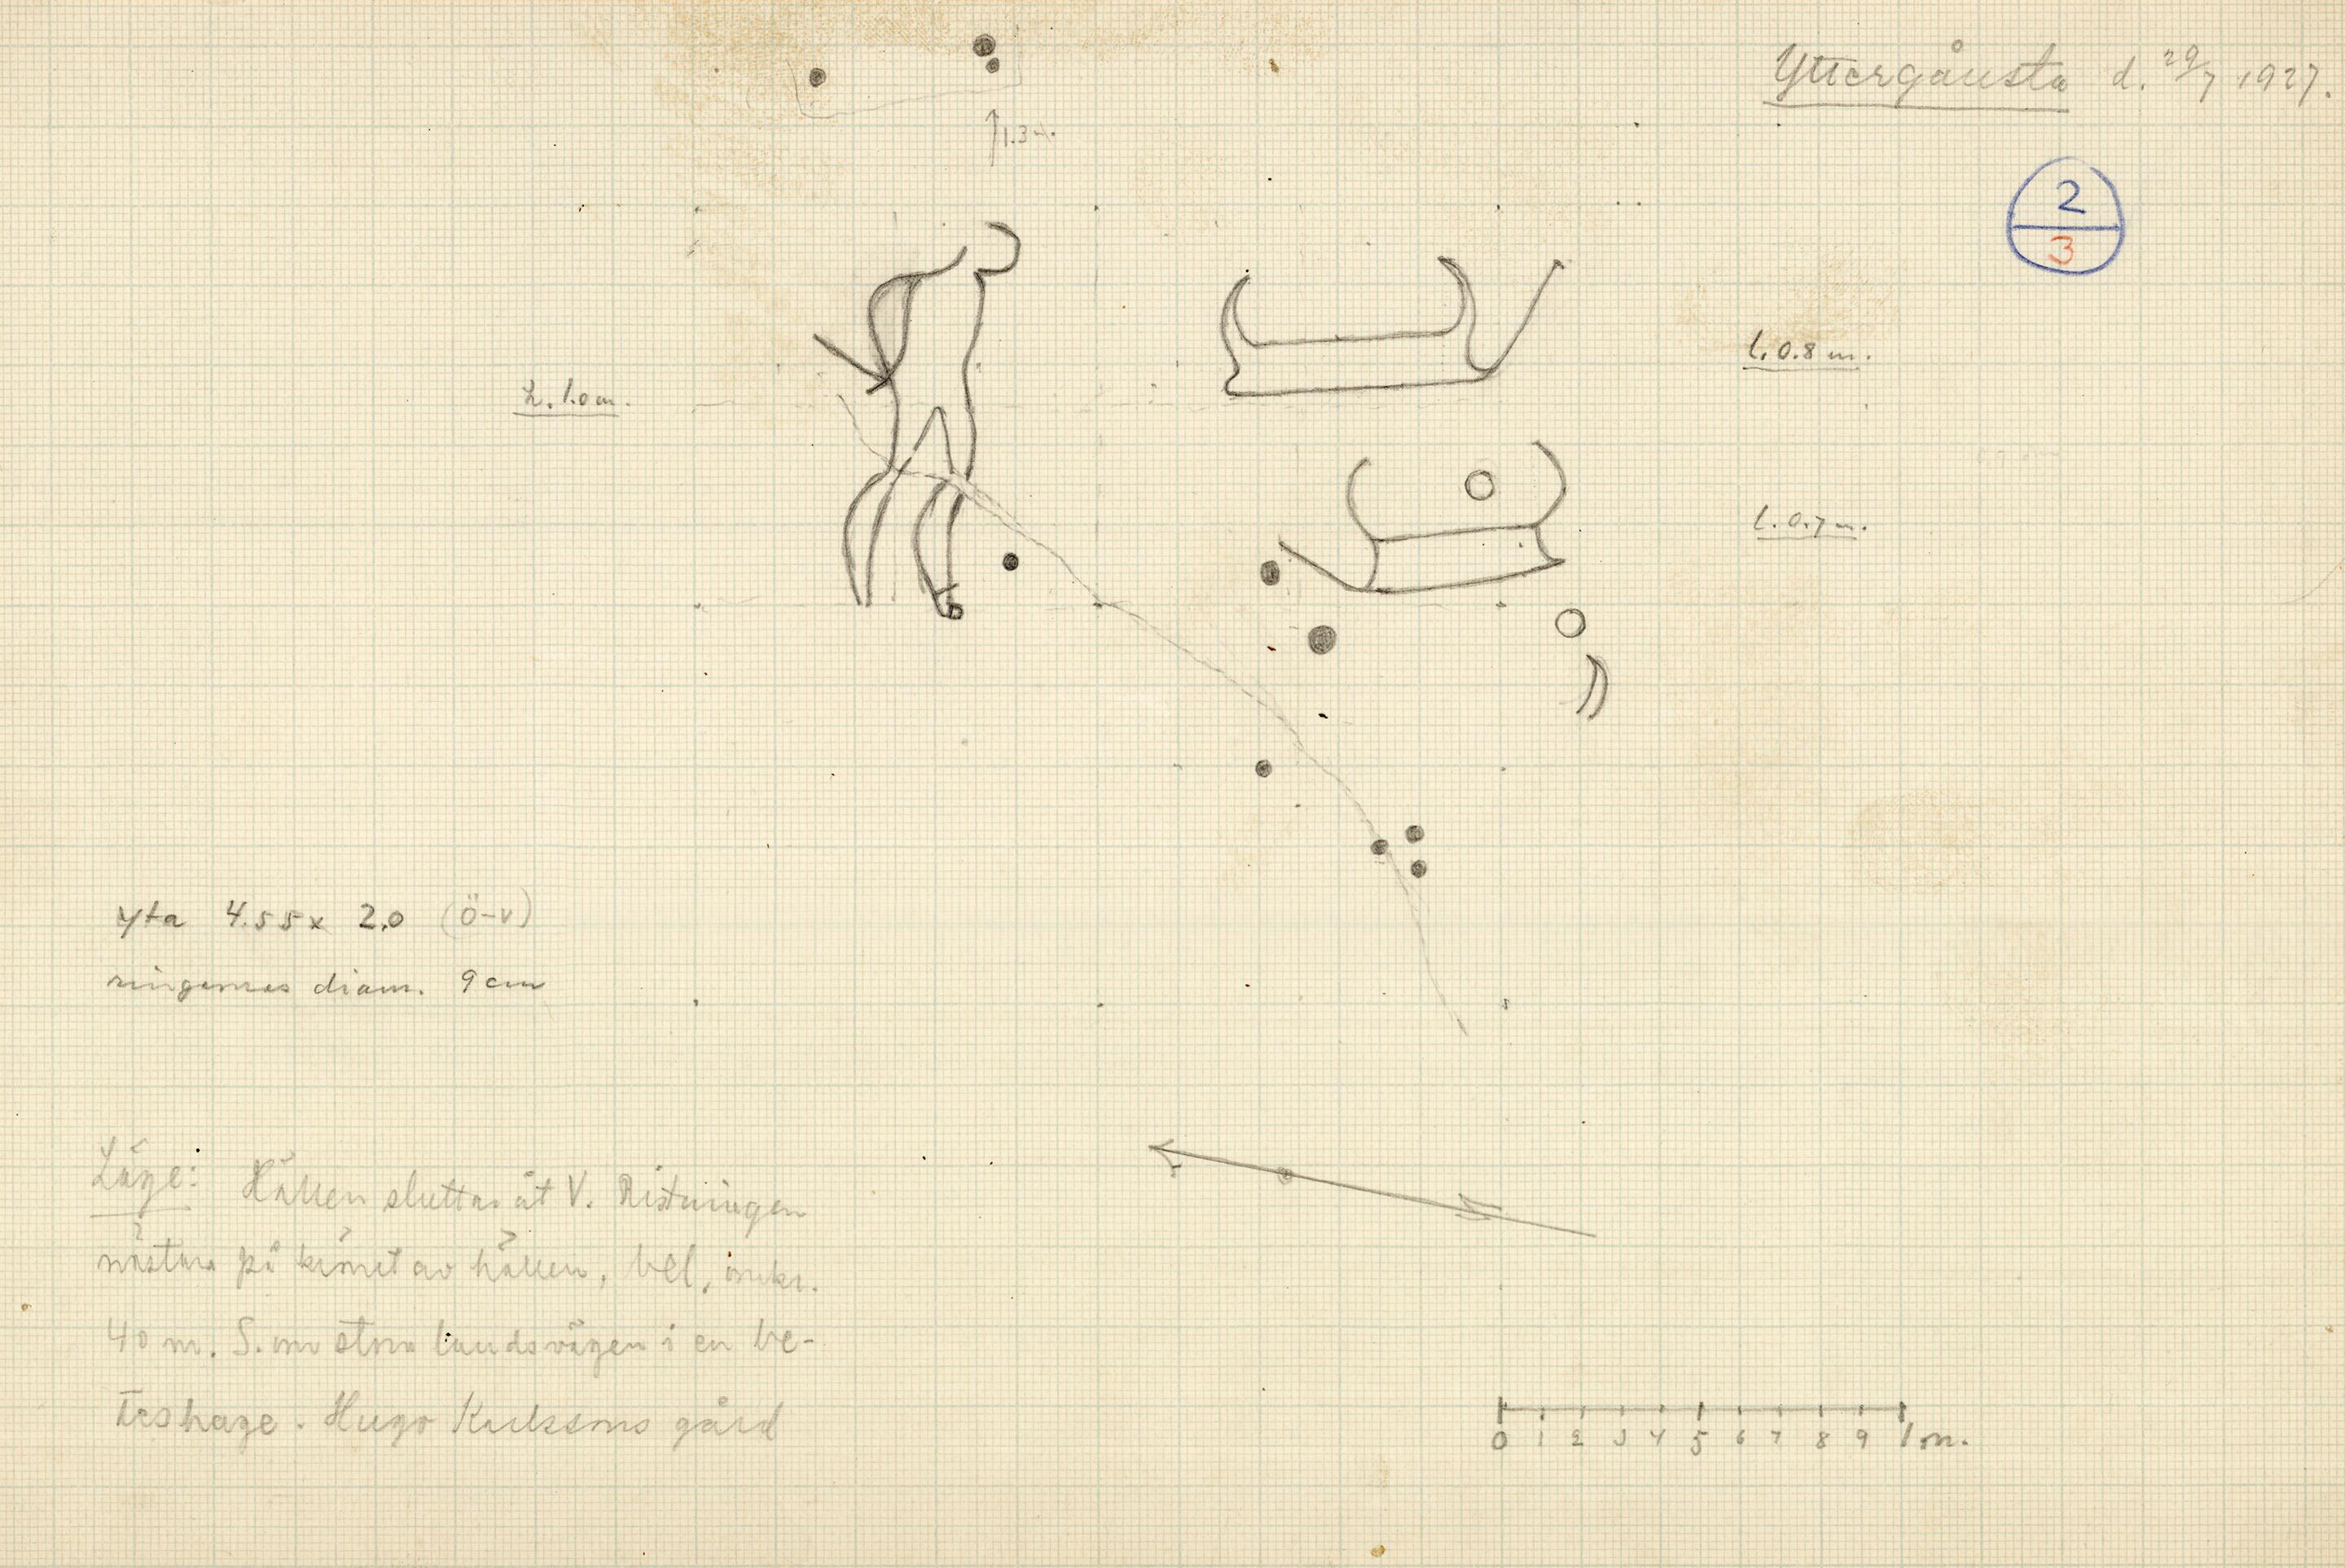 Yttergåusta d. 29/7 1927.
2
3
↑1.3 m.
l. 0.8 m.
h. 1.0 m.
l. 0.7 m.
yta 4.55 x 2.0 (Ö-V)
ringarnas diam. 9 cm
Läge: Hällen sluttar åt V. Ristningen
nästan på krönet av hällen, bel. omkr.
40 m. S. om stora landsvägen i en be-
teshage. Hugo Karlssons gård
0 1 2 3 4 5 6 7 8 9 1 m.